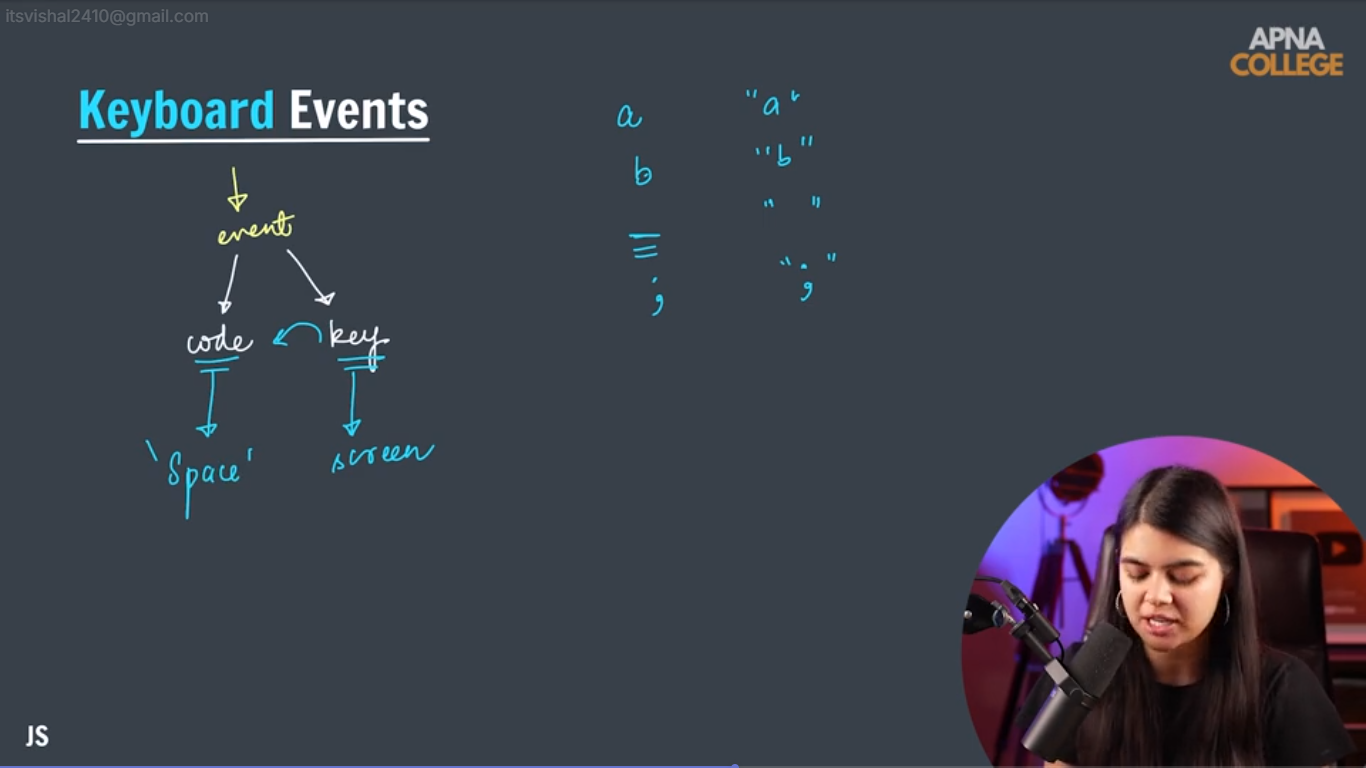 itsvishal2410@gmail.com
APNA
COLLEGE
Keyboard Events
event
code key
'Space' screen
a "a"
b "b"
" "
; ";"
JS